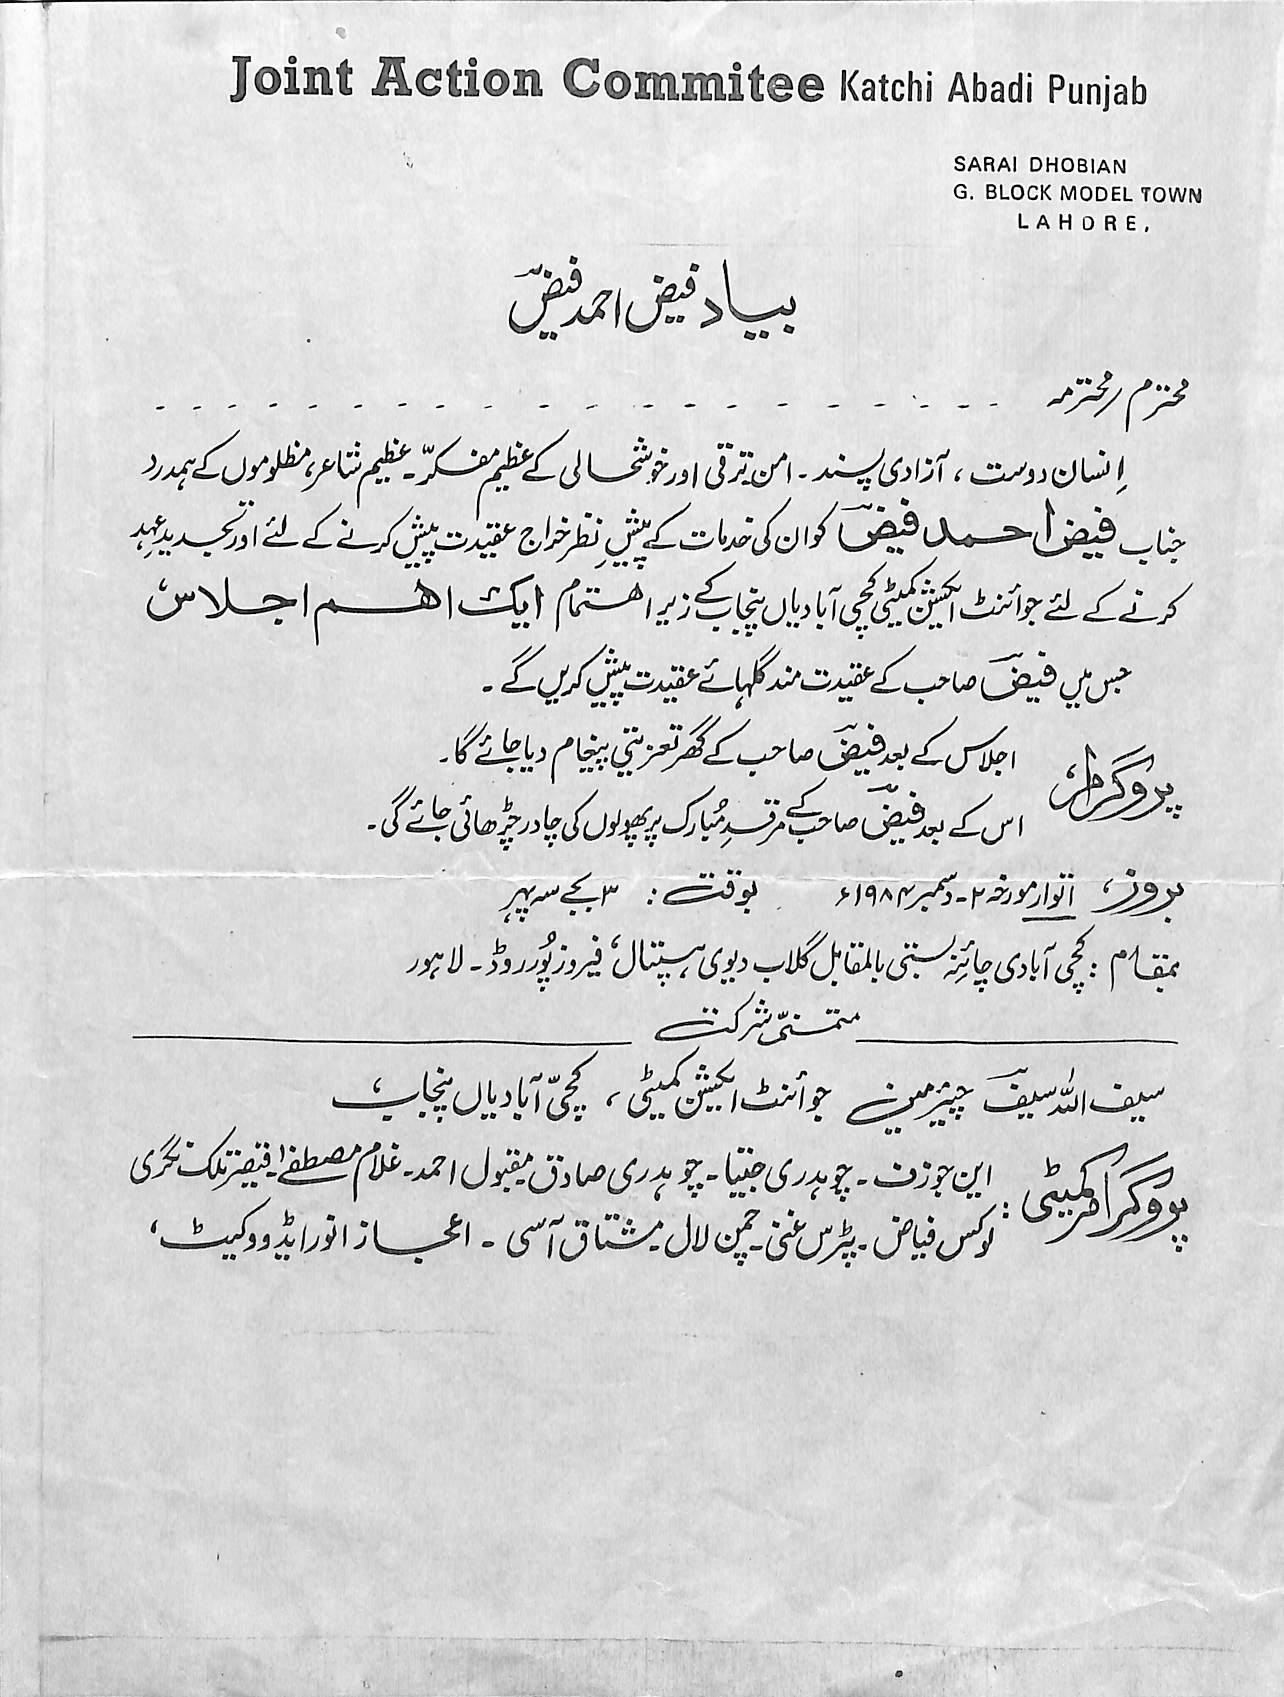 Joint Action Commitee Katchi Abadi Punjab
SARAI DHOBIAN
G. BLOCK MODEL TOWN
LAHORE.
بیاد فیض احمد فیضؔ
محترم / محترمہ - - - - - - - - - - - - - - - - - - - -
اِنسان دوست ، آزادی پسند ۔ امن ترقی اور خوشحالی کے عظیم مفکرّ ۔ عظیم شاعر، مظلوموں کے ہمدرد
جناب فیض احمد فیضؔ کو ان کی خدمات کے پیشِ نظر خراج عقیدت پیش کرنے کے لئے اور تجدیدِ عہد
کرنے کے لئے جوائنٹ ایکشن کمیٹی کچی آبادیاں پنجاب کے زیر اہتمام ایک اہم اجلاس
جس میں فیضؔ صاحب کے عقیدت مند گلہائے عقیدت پیش کریں گے ۔
پروگرام، اجلاس کے بعد فیضؔ صاحب کے گھر تعزیتی پیغام دیا جائے گا ۔
اس کے بعد فیضؔ صاحب کے مرقدِ مُبارک پر پھولوں کی چادر چڑھائی جائے گی ۔
بروز، اتوار مورخہ ۲ ۔ دسمبر ۱۹۸۴ء بوقت : ۳ بجے سہ پہر
بمقام : کچی آبادی چائنہ بستی بالمقابل گلاب دیوی ہسپتال، فیروز پُور روڈ ۔ لاہور
متمنّی شرکت
سیف اللہ سیفؔ چیئرمین جوائنٹ ایکشن کمیٹی ، کچیّ آبادیاں پنجاب،
پروگرام کمیٹی : این جوزف ۔ چوہدری جنتیا ۔ چوہدری صادق ۔ مقبول احمد ۔ غلام مصطفےٰ ۔ قیصر ملک نگری
لوکس فیاض ۔ پٹرس غنی ۔ چمن لال ۔ مشتاق آسی ۔ اعجاز انور ایڈووکیٹ ،